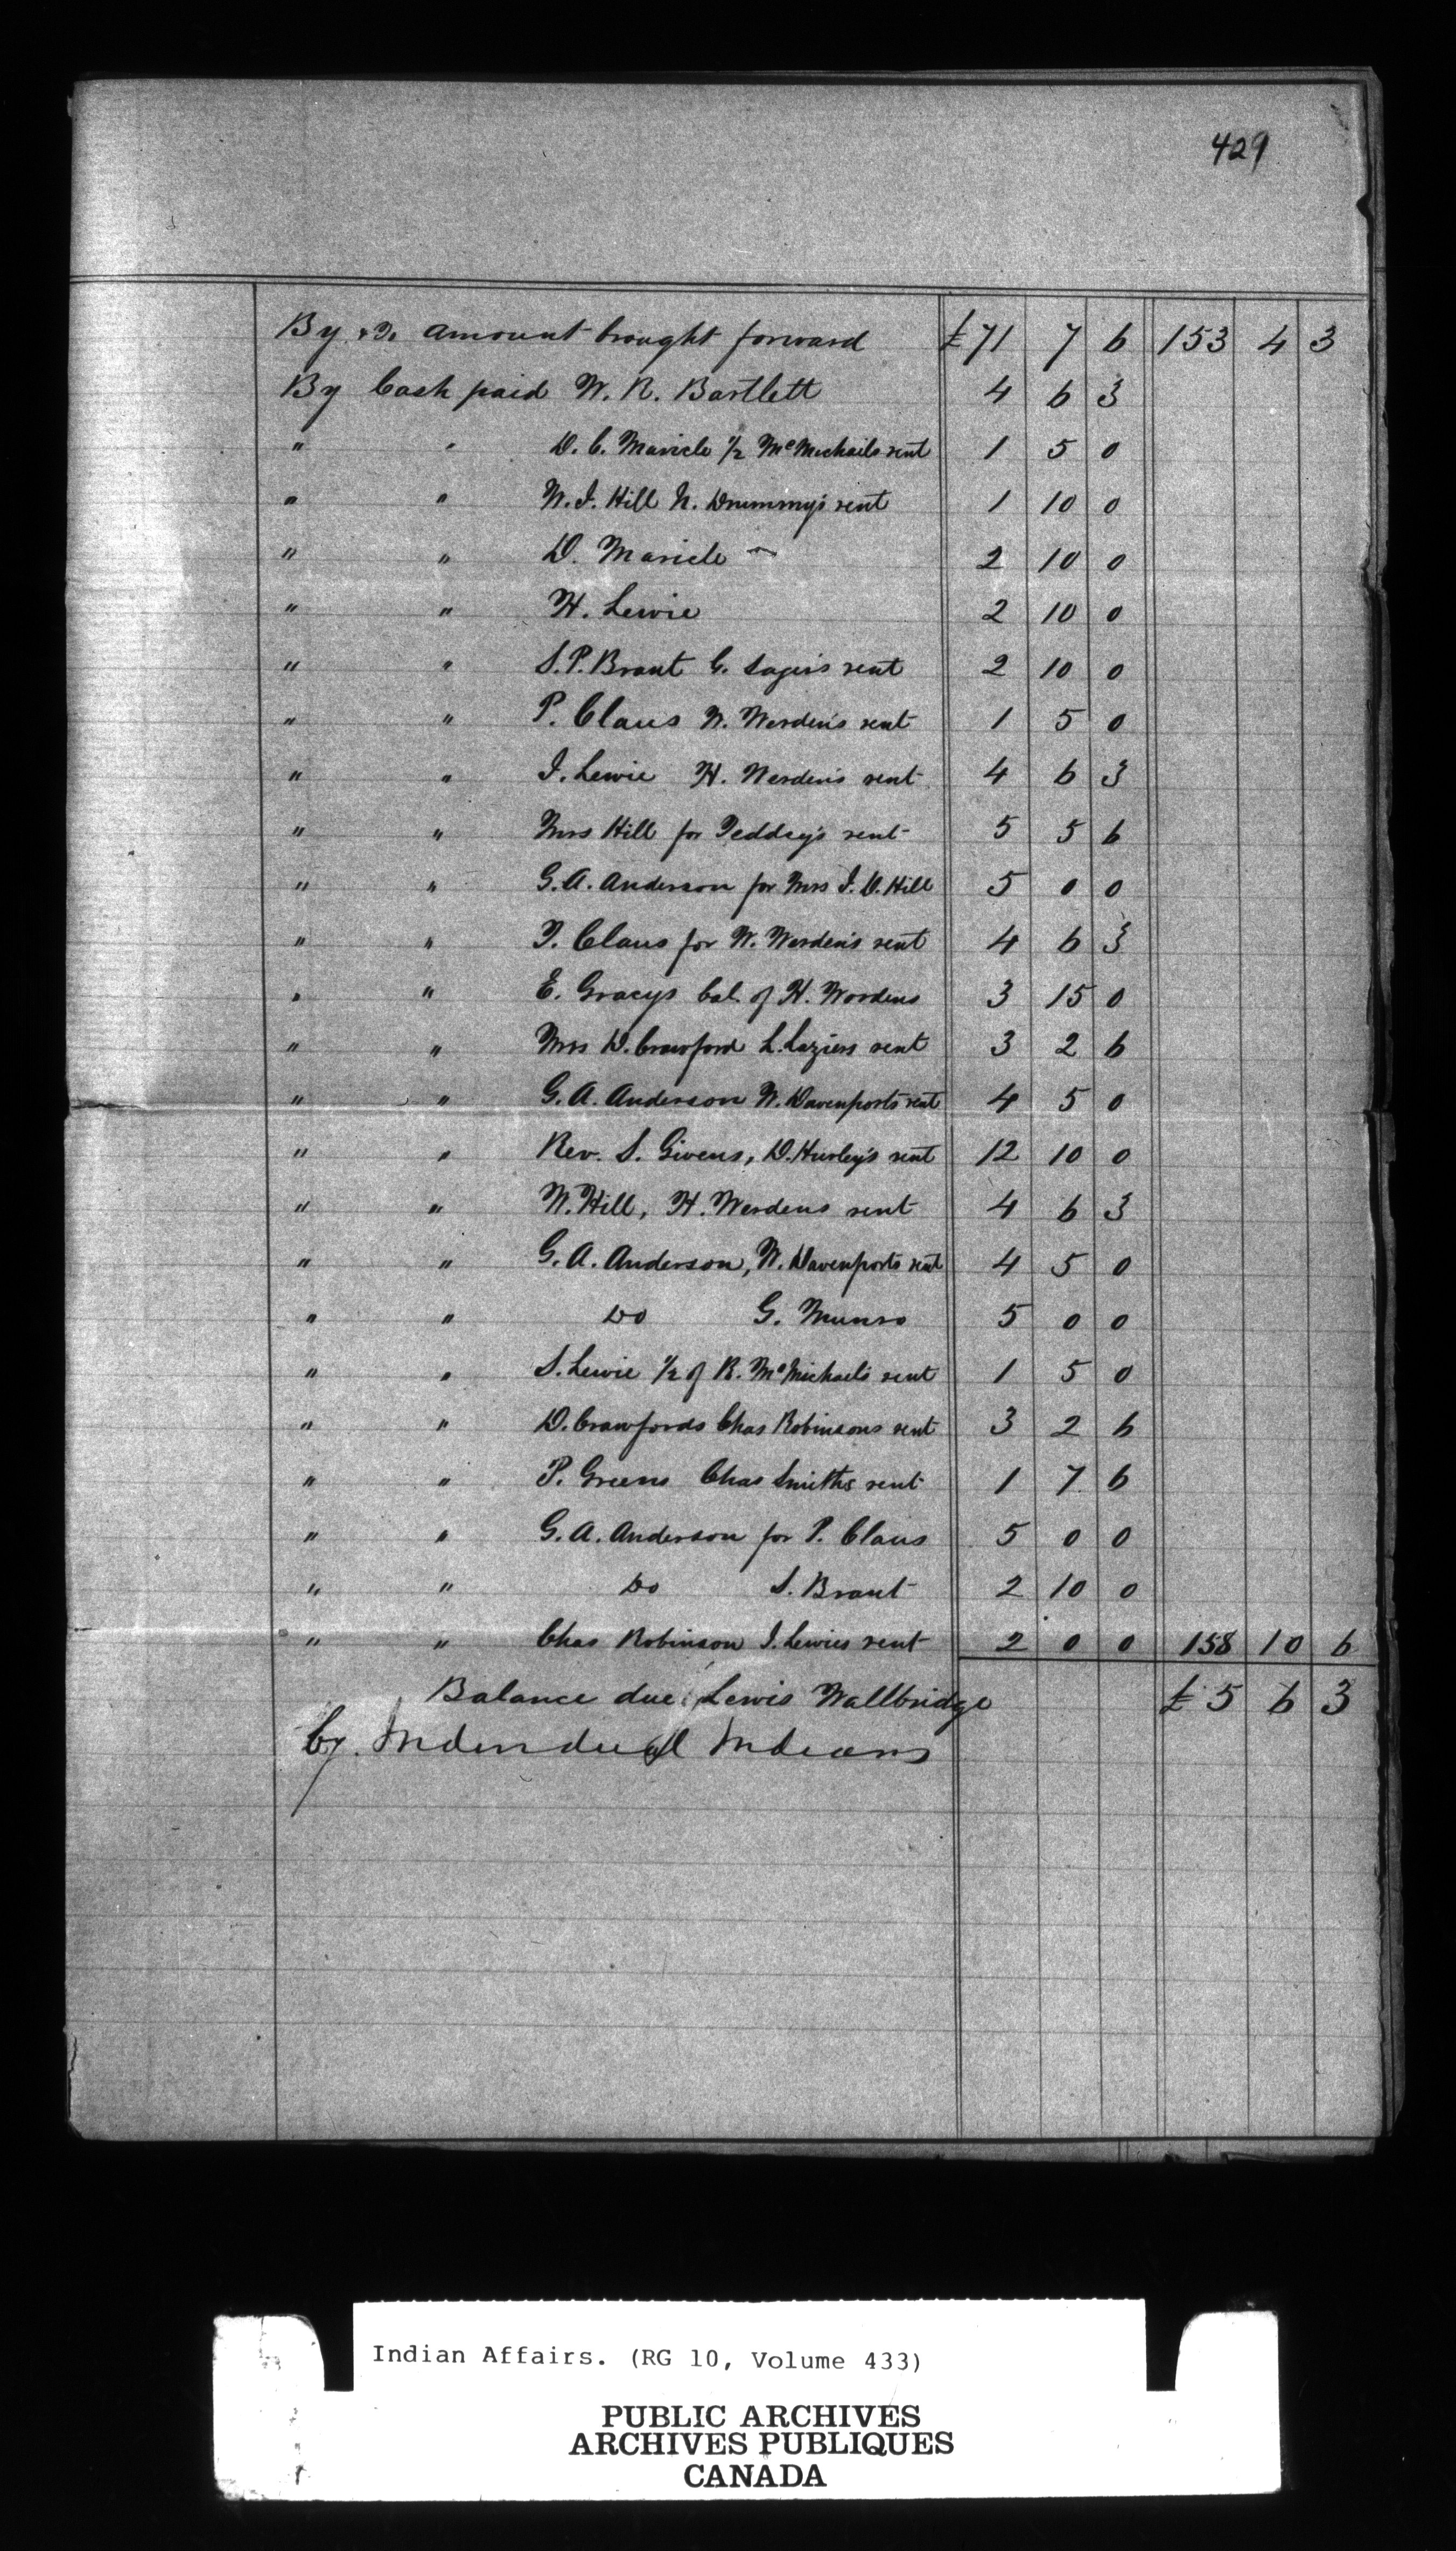 429
By & To amount brought forward £71 7 6 153 4 3
By Cash paid W. R. Bartlett 4 6 3
" " D. C. Maricle 1/2 McMichaels rent 1 5 0
" " W. I. Hill N. Drummy's rent 1 10 0
" " D. Maricle 2 10 0
" " H. Lewie 2 10 0
" " S. P. Brant G. Sager's rent 2 10 0
" " P. Claus W. Werden's rent 1 5 0
" " I. Lewie H. Werden's rent 4 6 3
" " Mrs Hill for Teddey's rent 5 5 6
" " G. A. Anderson for Mrs I. D. Hill 5 0 0
" " T. Claus for W. Werden's rent 4 6 3
" " E. Gracys bal. of H. Wordens 3 15 0
" " Mrs D. Crawford L. Laziers rent 3 2 6
" " G. A. Anderson W. Davenports rent 4 5 0
" " Rev. S. Givens, D. Hurley's rent 12 10 0
" " W. Hill, H. Werdens rent 4 6 3
" " G. A. Anderson, W. Davenports rent 4 5 0
" " Do G. Munro 5 0 0
" " S. Lewie 1/2 of R. McMichael's rent 1 5 0
" " D. Crawfords Chas Robinsons rent 3 2 6
" " P. Greens Chas Smiths rent 1 7 6
" " G. A. Anderson for P. Claus 5 0 0
" " Do S. Brant 2 10 0
" " Chas Robinson I. Lewies rent 2 0 0 158 10 6
Balance due Lewis Wallbridge £5 6 3
by Individual Indians
Indian Affairs. (RG 10, Volume 433)
PUBLIC ARCHIVES
ARCHIVES PUBLIQUES
CANADA